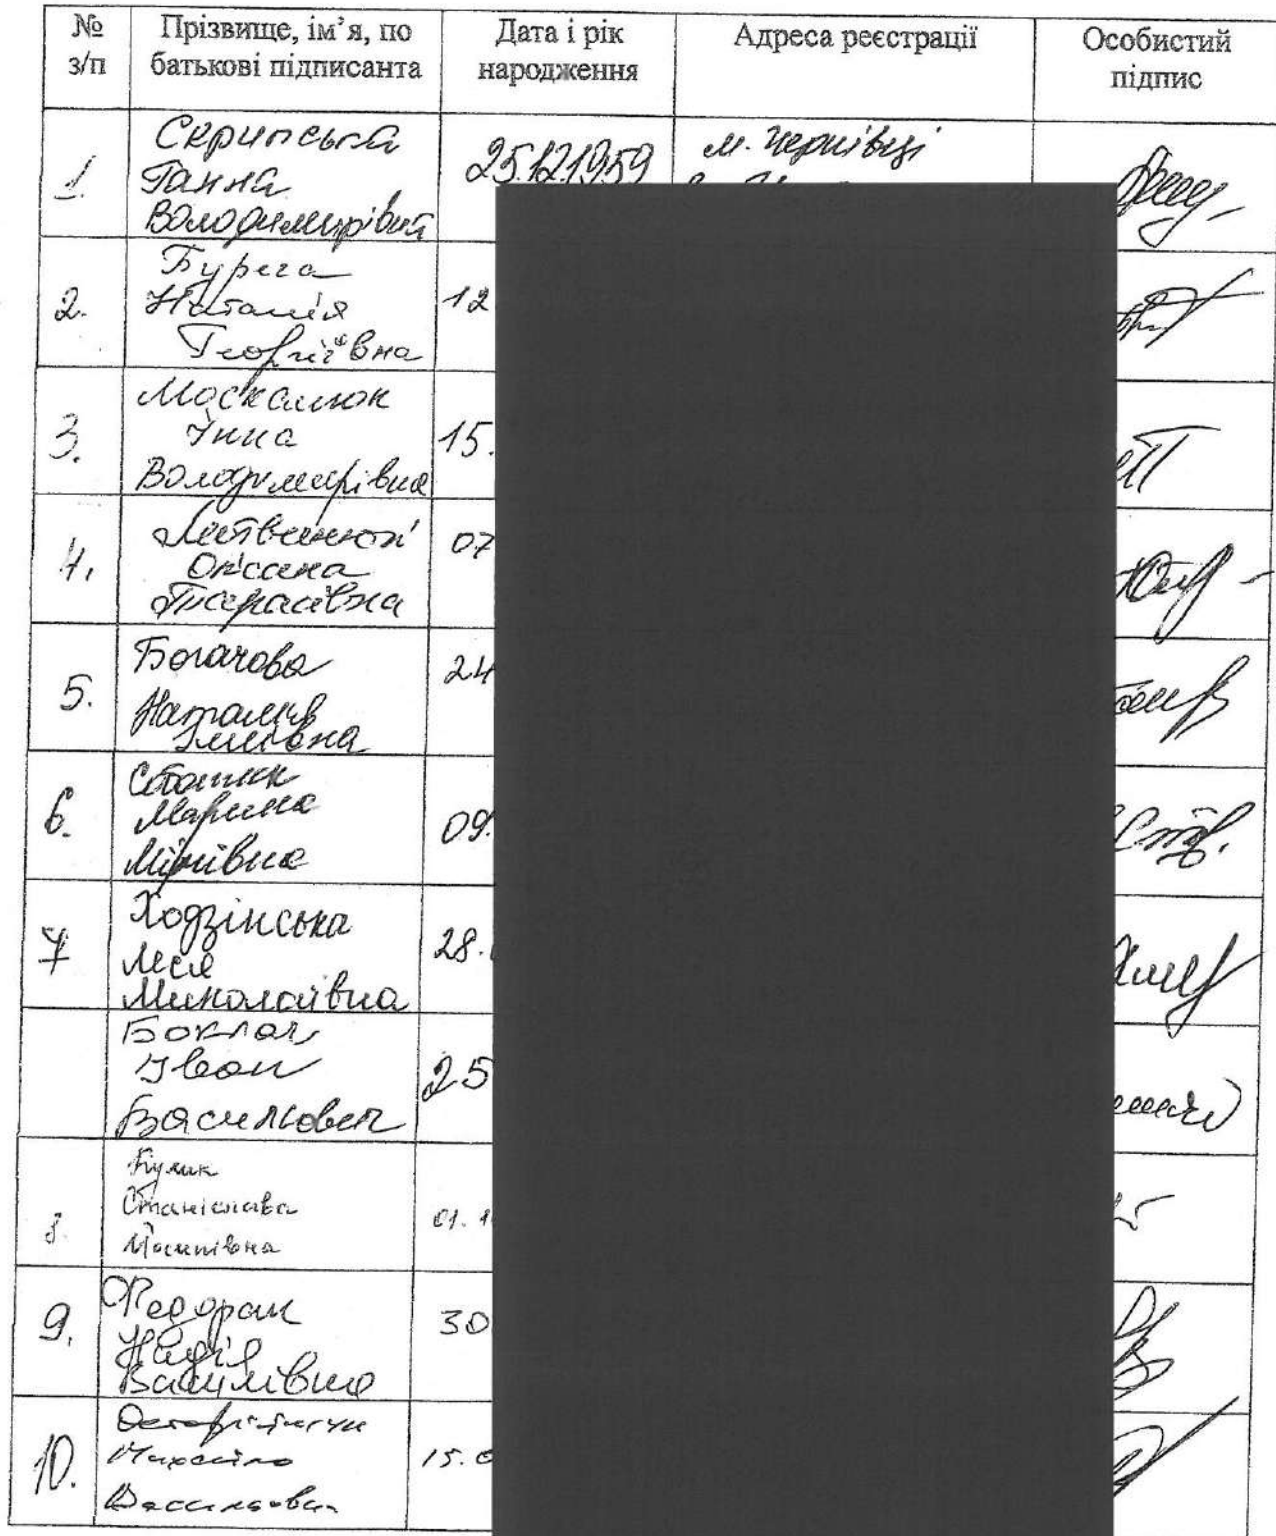 № з/п
Прізвище, ім’я, по батькові підписанта
Дата і рік народження
Адреса реєстрації
Особистий підпис
1.
Скрипська
Ганна
Володимирівна
25.12.1959
м. Чернівці
2.
Бурега
Наталія
Георгіївна
12
3.
Москалюк
Інна
Володимирівна
15.
4.
Оксана
Тарасівна
07
5.
Богачова
Наталія
24
6.
Марина
09.
7
Ходзінська
Леся
Миколаївна
28.
Боклач
Іван
Васильович
25
8.
Кулик
Станіслава
Йосипівна
01.1
9.
Федорак
Надія
Василівна
30
10.
Михайло
Васильович
15.0